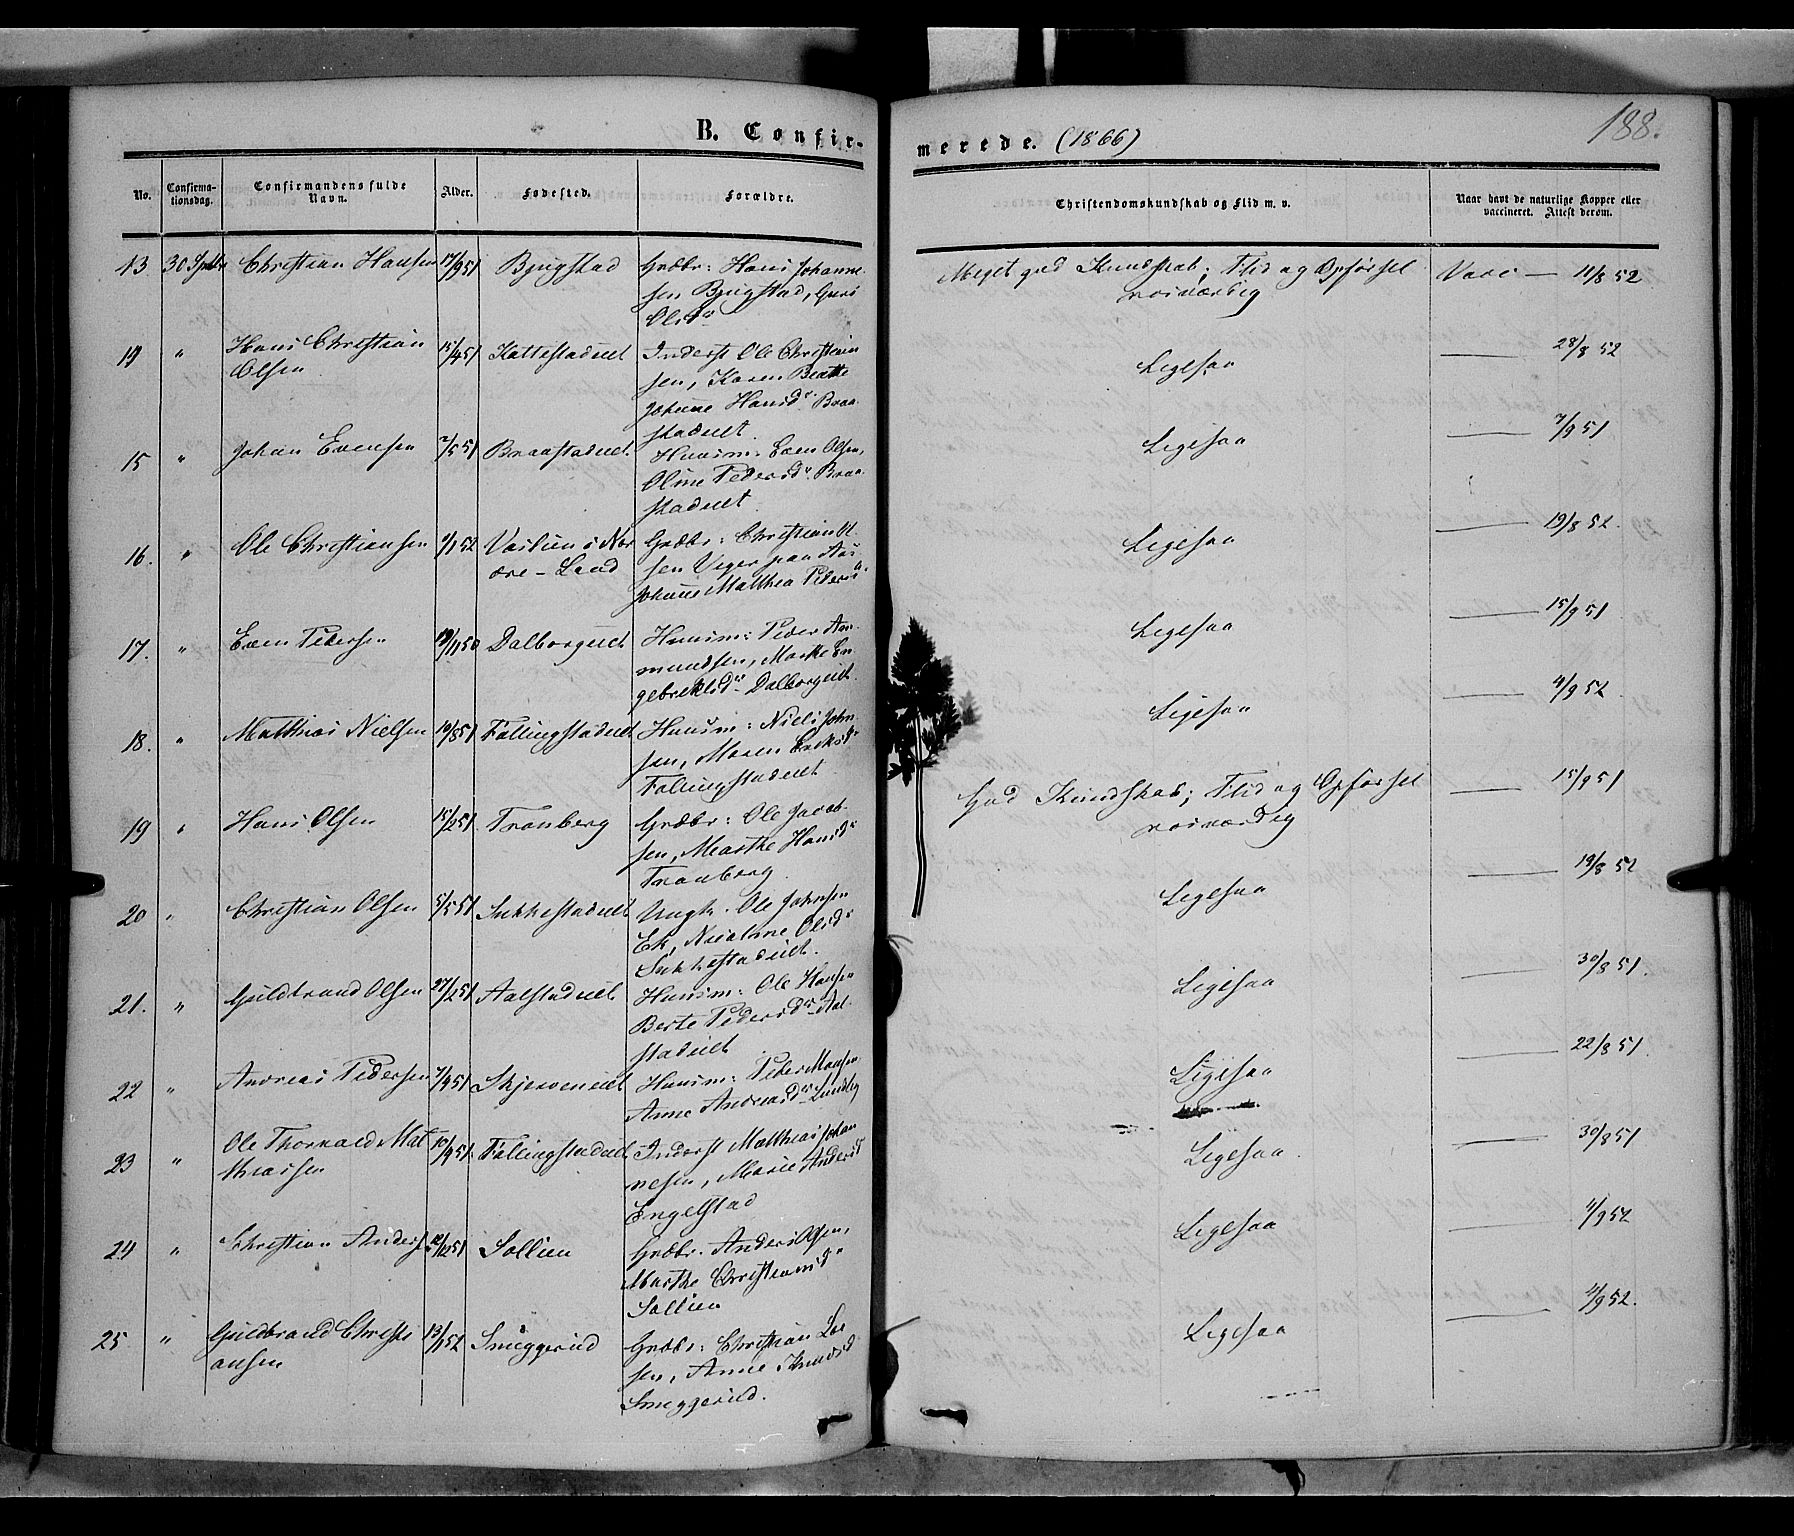 B. Confir-
merede. (1866)
188.
No.
Confirma-
tionsdag.
Confirmandens fulde
Navn.
Alder.
Fødested.
Forældre.
Christendomskundskab og Flid m. v.
Naar havt de naturlige Kopper eller
vaccineret. Attest derom.
13 30 Septbr Christian Hansen 17/9 51 Bjugstad Grdbr: Hans Johanne-
sen Bjugstad, Guri
Olsdr
Meget god Kundskab; Flid og Opførsel
rosværdig
Vacc — 11/8 52
14 " Hans Christian
Olsen
15/4 51 Kattestadeiet Inderst Ole Christian
sen, Karen Beatte
Johanne Hansdr Braa-
stadeiet.
Ligesaa — 28/8 52
15 " Johan Evensen 2/5 51 Braastadeiet Huusm: Even Olsen,
Oline Pedersdr Braa-
stadeiet
Ligesaa — 7/9 51
16. " Ole Christiansen 1/1 52 Vaslien i Nor
dre-Land
Grdbr: Christian Ol
sen Veger paa Aas
Johanne Matthea Pedersdr
Ligesaa — 19/8 52.
17. " Even Pedersen 19/11 50 Dalborgeiet Huusm: Peder Am-
mundsen, Marthe En
gebretsdr Dalborgeiet.
Ligesaa — 15/9 51
18. " Matthias Nielsen 19/8 51 Fällingstadeiet Huusm: Niels John-
sen, Maren Eriksdr
Fällingstadeiet
Ligesaa — 4/9 52
19 " Hans Olsen 15/2 51 Tranberg Grdbr: Ole Jacob-
sen, Marthe Hansdr
Tranberg.
God Kundskab; Flid og Opførsel
rosværdig
— 15/9 51
20 " Christian Olsen 5/5 51 Sukkestadeiet Ungk. Ole Johnsen
Ek, Nicoline Olsdr
Sukkestadeiet.
Ligesaa — 19/8 52
21. " Guldbrand Olsen 27/2 51 Aalstadeiet Huusm: Ole Hansen
Berte Pedersdr Aal-
stadeiet
Ligesaa — 30/8 51.
22 " Andreas Pedersen 7/9 51 Skjerveneiet Huusm: Peder Hansen
Anne Andreasdr
Ligesaa — 22/8 51.
23 " Ole Thorvald Mat
thiassen
10/9 51. Fällingstadeiet Inderst Matthias Johan
nesen, Marie Andersd
Engelstad
Ligesaa. — 30/8 51
24 " Christian Anders 12/12 51 Sollien Grdbr. Anders Olsen,
Marthe Christiansdr
Sollien
Ligesaa — 4/9 52
25 " Guldbrand Christi
ansen
13/1 52 Smeggerud Grdbr: Christian Lar
sen, Anne Knudsd
Smeggerud.
Ligesaa — 4/9 52.